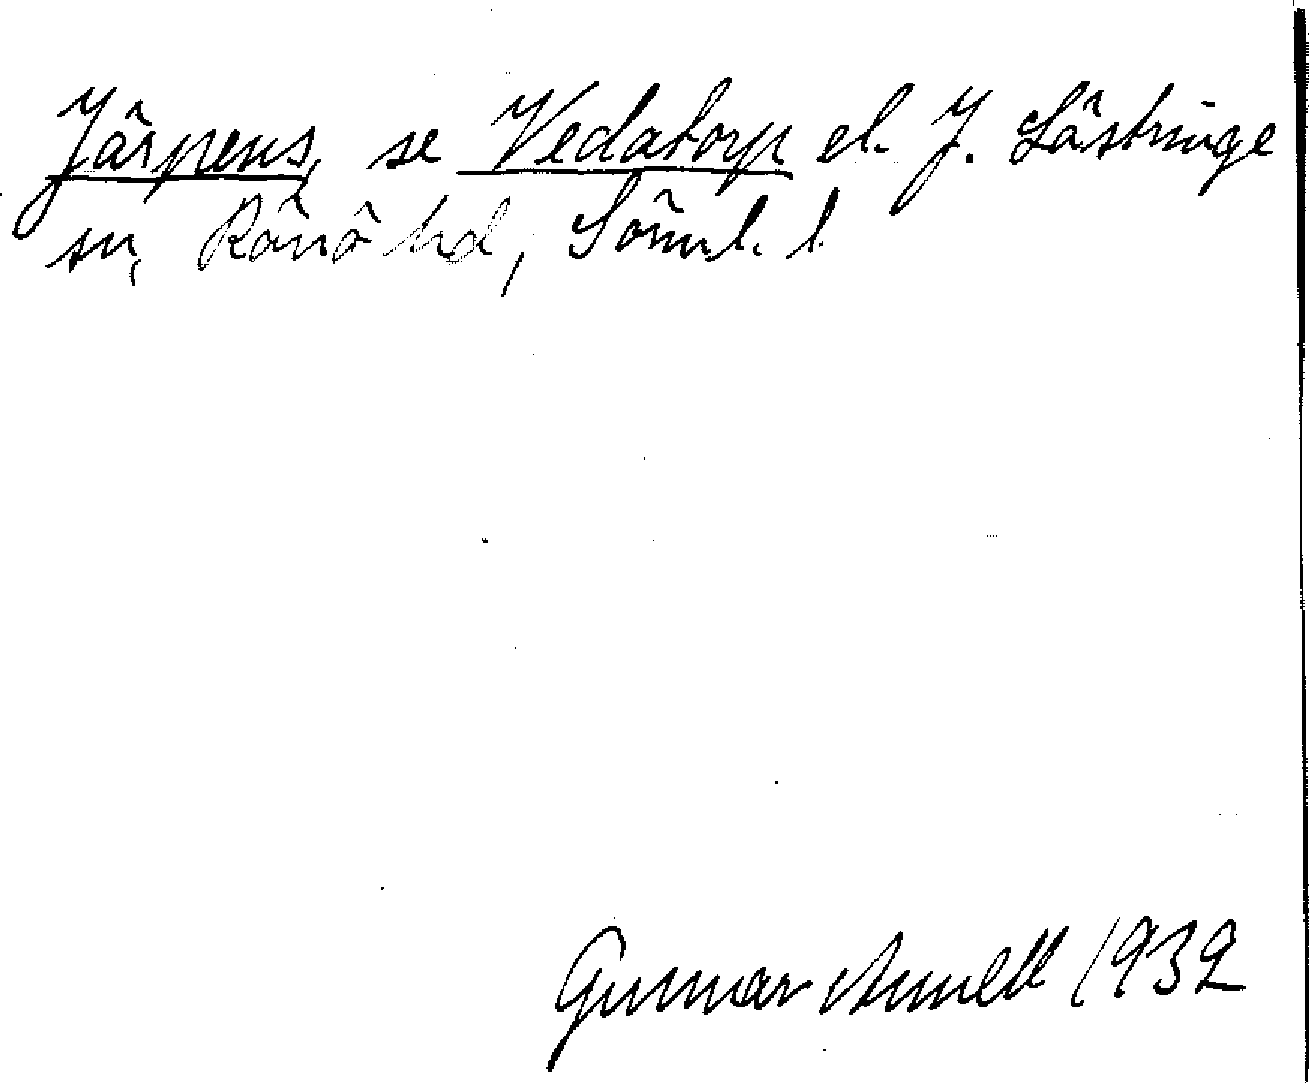 Järpens, se Vedatorp el. J. Lästringe
sn, Rönö hd, Söml. l.
Gunnar Amell 1932